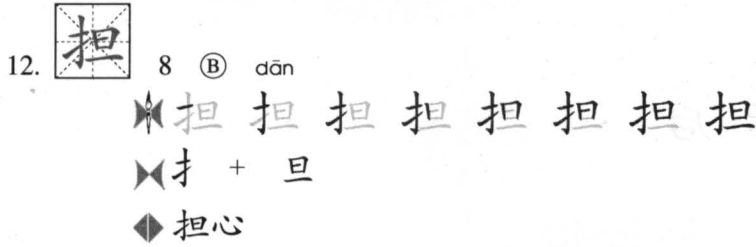 12. 担 8 Ⓑ dān
担 担 担 担 担 担 担 担
扌 + 旦
担心